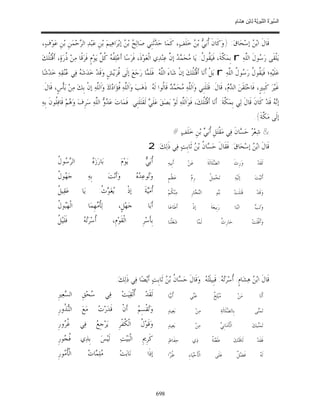 السيرة النبوية لابن هشام
قَالَ ابْنُ إسْحَاقَ: (وَكَانَ أُبَيُّ بْنُ خَلَفٍ، كَمَا حَدَّثَنِي صَالِحُ بْنُ إبْرَاهِيمَ بْنِ عَبْدِ الرَّحْمَنِ بْنِ عَوْفٍ،
يَلْقَى رَسُولَ اللَّهِ r بِمَكَّةَ، فَيَقُولُ: يَا مُحَمَّدُ إنَّ عِنْدِي الْعَوْذَ، فَرَسًا أَعْلِفُهُ كُلَّ يَوْمٍ فَرَقًا مِنْ ذُرَةٍ، أَقْتُلُكَ
عَلَيْهِ؛ فَيَقُولُ رَسُولُ اللَّهِ r بَلْ أَنَا أَقْتُلُكَ إنْ شَاءَ اللَّهُ. فَلَمَّا رَجَعَ إلَى قُرَيْشٍ وَقَدْ خَدَشَهُ فِي عُنُقِهِ خَدْشًا
غَيْرَ كَبِيرٍ، فَاحْتَقَنَ الدَّمُ، قَالَ: قَتَلَنِي وَاَللَّهِ مُحَمَّدٌ قَالُوا لَهُ: ذَهَبَ وَاَللَّهِ فُؤَادُكَ وَاَللَّهِ إنْ بِكَ مِنْ بَأْسٍ، قَالَ:
إنَّهُ قَدْ كَانَ قَالَ لِي بِمَكَّةَ: أَنَا أَقْتُلُكَ، فَوَاَللَّهِ لَوْ بَصَقَ عَلَيَّ لَقَتَلَنِي. فَمَاتَ عَدُوُّ اللَّهِ بِسَرِفَ وَهُمْ قَافِلُونَ بِهِ
إلَى مَكَّةَ).
// شِعْرُ حَسَّانَ فِي مَقْتَلِ أُبَيِّ بْنِ خَلَفٍ //
قَالَ ابْنُ إسْحَاقَ: فَقَالَ حَسَّانُ بْنُ ثَابِتٍ فِي ذَلِكَ 2
لَقَدْ وَرِثَ الضَّلَالَةَ عَنْ أَبِيهِ أُبَيُّ يَوْمَ بَارَزَهُ الرَّسُولُ
أَتَيْتَ إلَيْهِ تَحْمِلُ رِمَّ عَظْمٍ وَتُوعِدُهُ وَأَنْتَ بِهِ جَهُولُ
وَقَدْ قَتَلَتْ بَنُو النَّجَّارِ مِنْكُمْ أُمَيَّةَ إذْ يُغَوِّثُ يَا عَقِيلُ
وَتَبَّ ابْنَا رَبِيعَةَ إذْ أَطَاعَا أَبَا جَهْلٍ، لِأُمِّهِمَا الْهَبُولُ
وَأَفْلَتَ حَارِثٌ لَمَّا شَغَلْنَا بِأَسْرِ الْقَوْمِ، أُسْرَتُهُ فَلِيلُ
قَالَ ابْنُ هِشَامٍ: أُسْرَتُهُ: قَبِيلَتُهُ. وَقَالَ حَسَّانُ بْنُ ثَابِتٍ أَيْضًا فِي ذَلِكَ
أَلَا مَنْ مُبْلِغٌ عَنِّي أُبَيًّا لَقَدْ أُلْقِيتَ فِي سُحْقِ السَّعِيرِ
تَمَنَّى بِالضَّلَالَةِ مِنْ بَعِيدٍ وَتُقْسِمُ أَنْ قَدَرْتَ مَعَ النُّذُورِ
تَمَنِّيكَ الْأَمَانِيَّ مِنْ بَعِيدٍ وَقَوْلُ الْكُفْرِ يَرْجِعُ فِي غُرُورِ
فَقَدْ لَاقَتْكَ طَعْنَةُ ذِي حِفَاظٍ كَرِيمِ الْبَيْتِ لَيْسَ بِذِي فُجُورِ
لَهُ فَضْلٌ عَلَى الْأَحْيَاءِ طُرًّا إذَا نَابَتْ مُلِمَّاتُ الْأُمُورِ
698